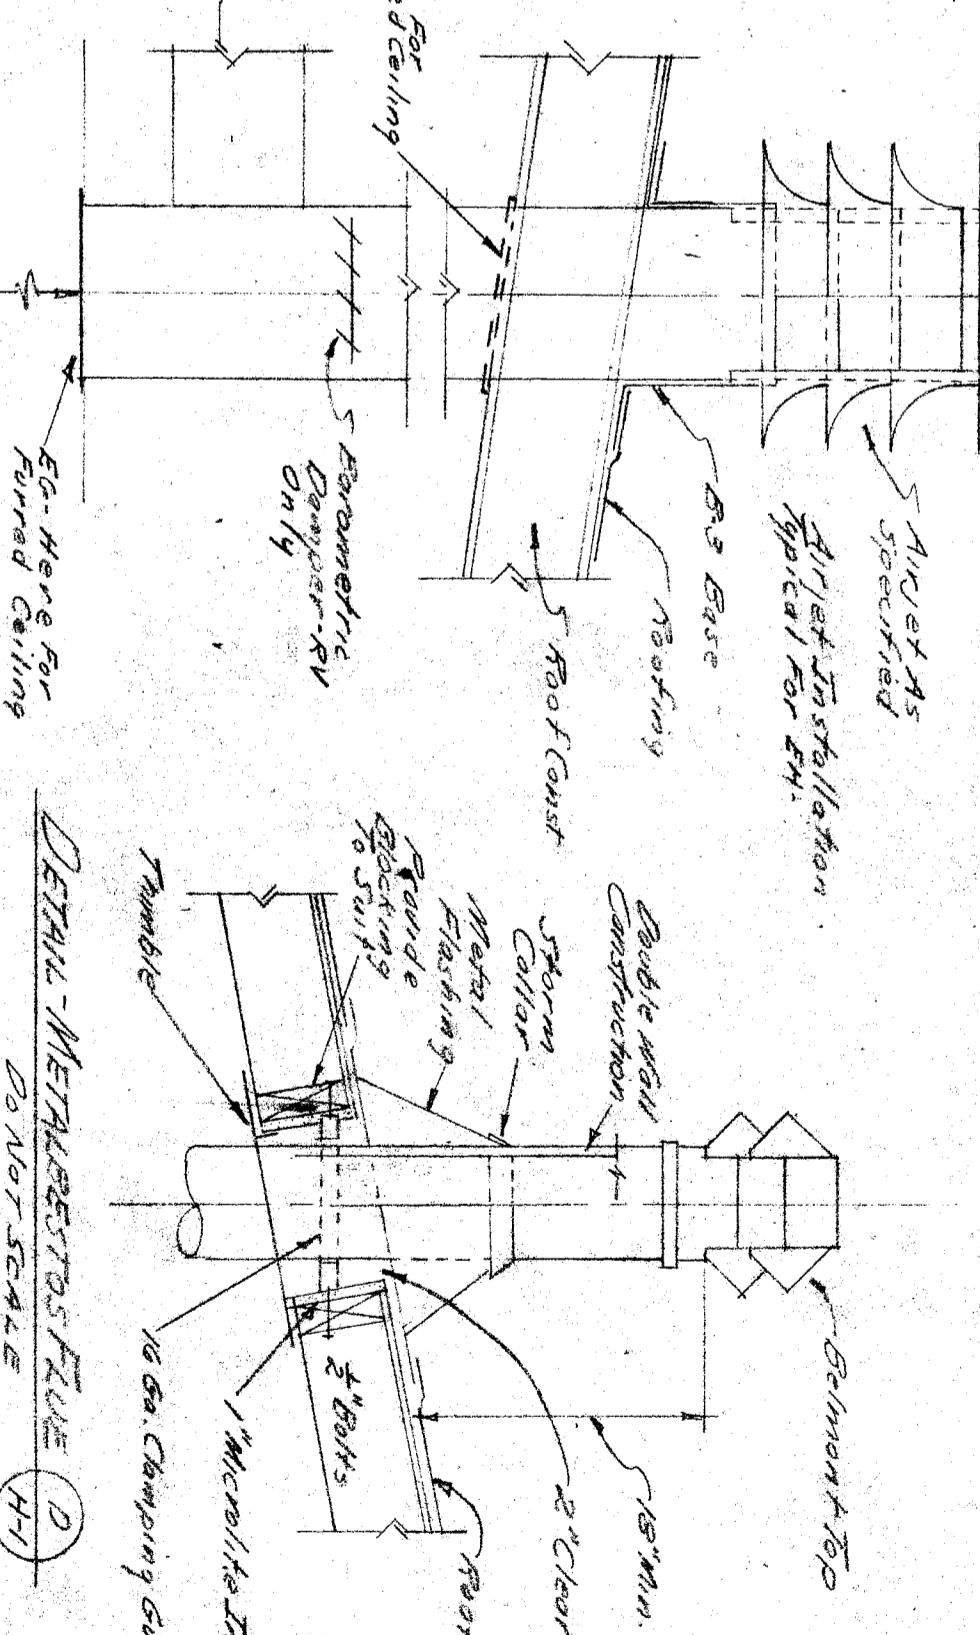 For
Ceiling
Airjet As
Specified
Airjet Installation
Typical For EH-
B-3 Base
Roofing
Roof Const
Barometric
Damper-RV
Only
EG-Here For
Furred Ceiling
Belmont Top
18" Min.
2" Clear
Double Wall
Construction
Storm
Collar
Metal
Flashing
Provide
Blocking
To Suit
Thimble
1/2" Bolts
1" Microlite
16 Ga. Clamping
DETAIL-METALBESTOS FLUE
DO NOT SCALE
D
H-1